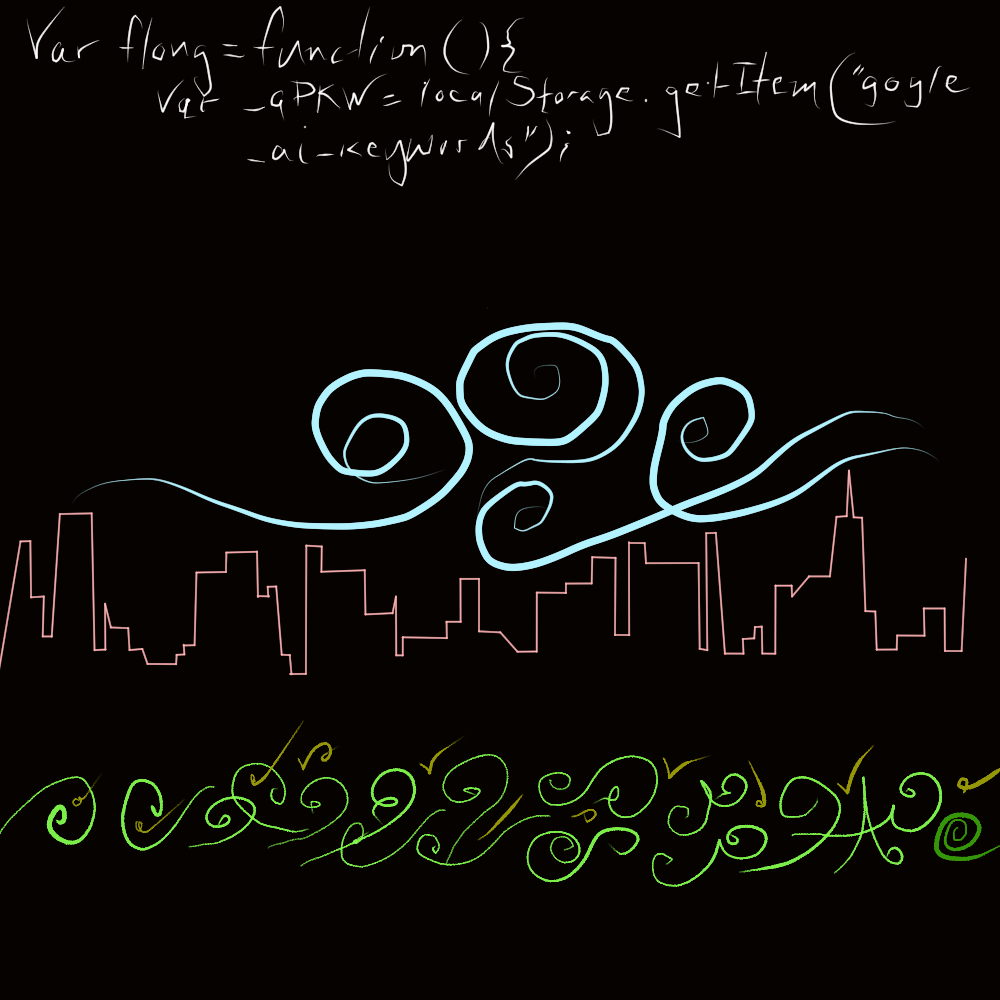 Var flong=function(){
var _aPKW=localStorage.getItem("google
_ai_keywords");